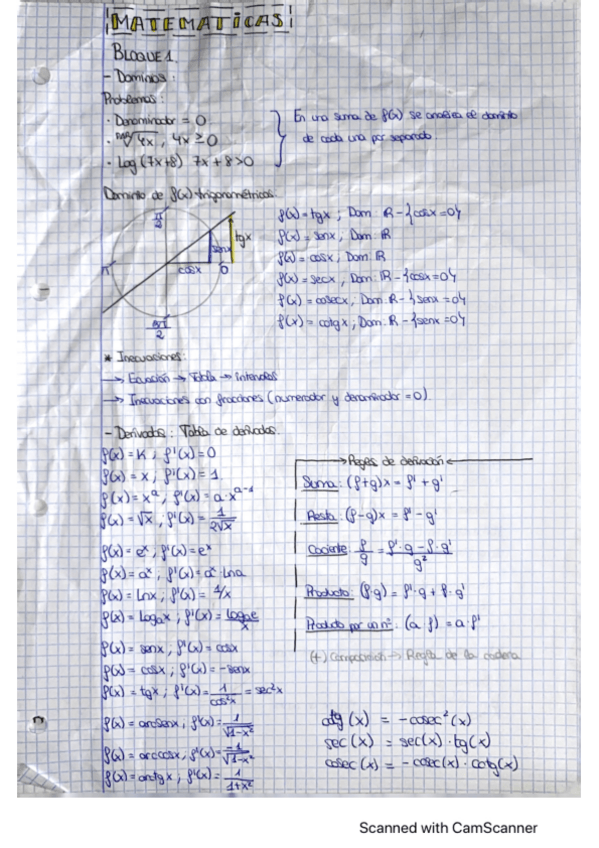 MATEMATICAS
BLOQUE 1.
- Dominios:
Problemas:
· Denominador = 0
· PAR√4x, 4x ≥ 0
· Log (7x+8) 7x + 8 > 0
En una suma de f(x) se analiza el dominio
de cada una por separado
Dominio de f(x) trigonométricas:
π/2
tgx
senx
π
cosx
0
3π/2
f(x) = tgx ; Dom: R - {cosx = 0}
f(x) = senx, Dom: R
f(x) = cosx, Dom: R
f(x) = secx, Dom: R - {cosx = 0}
f(x) = cosecx, Dom: R - {senx = 0}
f(x) = cotgx ; Dom: R - {senx = 0}
* Inecuaciones:
→ Ecuación → Tabla → intervalos
→ Inecuaciones con fracciones (numerador y denominador = 0)
- Derivadas: Tabla de derivadas.
f(x) = K ; f'(x) = 0
f(x) = x ; f'(x) = 1
f(x) = x^a, f'(x) = a·x^(a-1)
f(x) = √x, f'(x) = 1/(2√x)
f(x) = e^x, f'(x) = e^x
f(x) = a^x, f'(x) = a^x·Lna
f(x) = Lnx, f'(x) = 1/x
f(x) = Log_a x, f'(x) = Log_a e / x
f(x) = senx, f'(x) = cosx
f(x) = cosx ; f'(x) = -senx
f(x) = tgx, f'(x) = 1/cos²x = sec²x
f(x) = arcsenx, f'(x) = 1/√(1-x²)
f(x) = arccosx, f'(x) = -1/√(1-x²)
f(x) = arctgx, f'(x) = 1/(1+x²)
→ Reglas de derivación ←
Suma: (f+g)x = f' + g'
Resta: (f-g)x = f' - g'
Cociente: f/g = (f'·g - f·g')/g²
Producto: (f·g) = f'·g + f·g'
Producto por un nº: (a f) = a·f'
(+) Composición → Regla de la cadena
cotg (x) = -cosec² (x)
sec (x) = sec(x)·tg(x)
cosec (x) = -cosec(x)·cotg(x)
Scanned with CamScanner